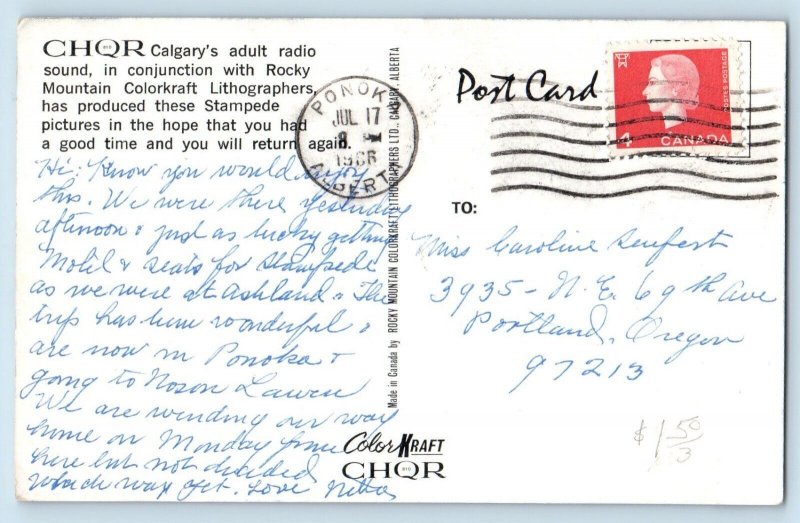 CHQR Calgary's adult radio
sound, in conjunction with Rocky
Mountain Colorkraft Lithographers,
has produced these Stampede
pictures in the hope that you had
a good time and you will return again.
Hi: Know you would enjoy
this. We were there yesterday
afternoon & just as lucky getting
Motel & seats for Stampede
as we were at Ashland. The
trip has been wonderful &
are now in Ponoka &
going to
We are winding our way
home on Monday from
here but not decided
which way yet. Love Netta
Made in Canada by ROCKY MOUNTAIN COLORKRAFT LITHOGRAPHERS LTD., CALGARY, ALBERTA
PONOKA
JUL 17
1966
ALBERTA
Post Card
4
CANADA
POSTES POSTAGE
TO:
Miss Caroline Seufert
3935 - N.E. 69th Ave
Portland, Oregon
97213
$1 50
3
Color KRAFT
CHQR